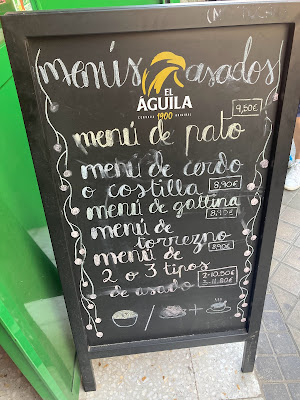 menús asados
EL
ÁGUILA
CERVEZA 1900 ORIGINAL
9,50€
menú de pato
menú de cerdo
o costilla 8,90€
menú de gallina
8,90€
menú de
torrezno 8,90€
menú de
2 o 3 tipos
2-10,80€
3-11,80€
de asado
/ +